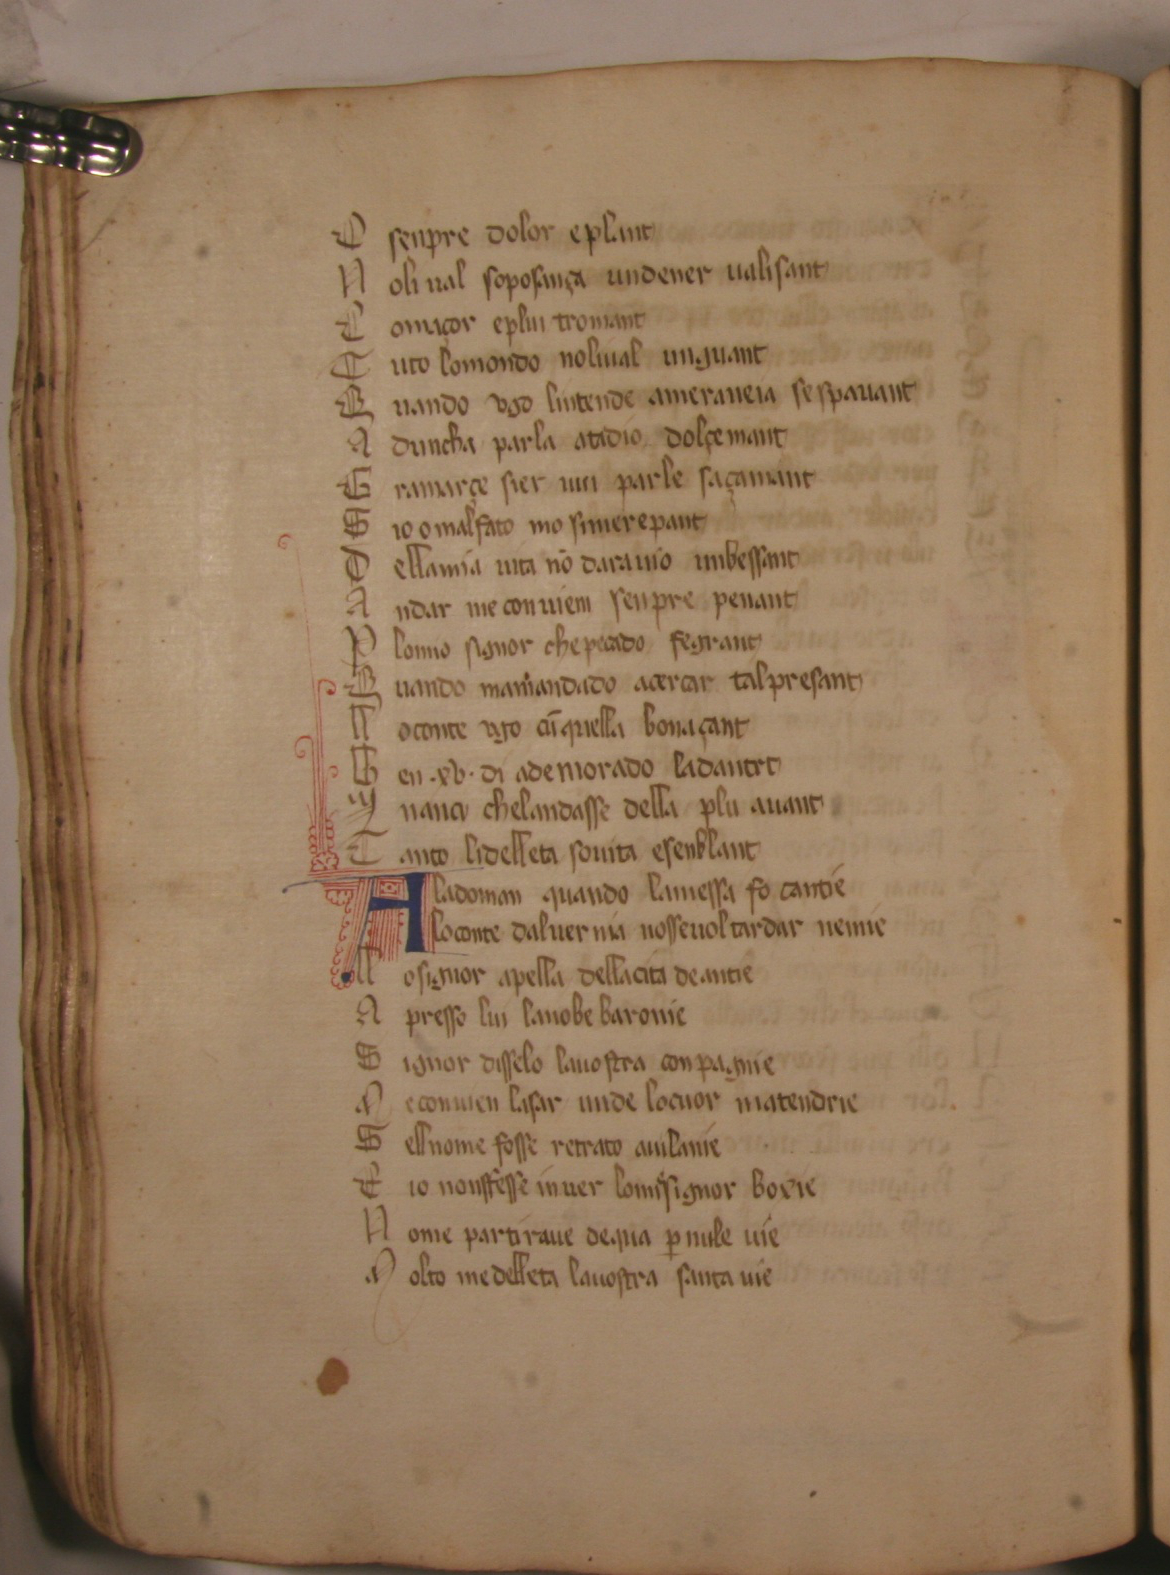 E senpre dolor e plant
N oli ual so posança un dener ualisant
C o maçor e plui tromant
T uto lo mondo no li ual un guant
Q uando vgo lintende a meraueia se spauant
A duncha parla atidio dolçemant
G ramarçe sier uui parle saçamant
S io o mal fato mo si me repant
D ella mia uita nō daraui o un bessant
A ndar me conuiem senpre penant
P lo mio signor che pecado fe grant
Q uando ma mandado a cercar tal presant
L o conte vgo cū quella bona çant
B en .xv. di ademorado la dantrt
M nançi che landasse della plu auant
T anto li delleta so uita e senblant
A la doman quando la messa fo cantie
A lo conte daluernia nosse uol tardar nemie
L o signor apella della cita de antie
A presse lui la nobe baronie
S ignor disse lo la uostra conpagnie
M e conuien lasar unde lo cuor matendrie
S ell nome fosse retrato a uilanie
E io non fesse in uer lo mē signor boxie
N o me partiraue de qua p nule uie
M olto me delleta la uostra santa uie